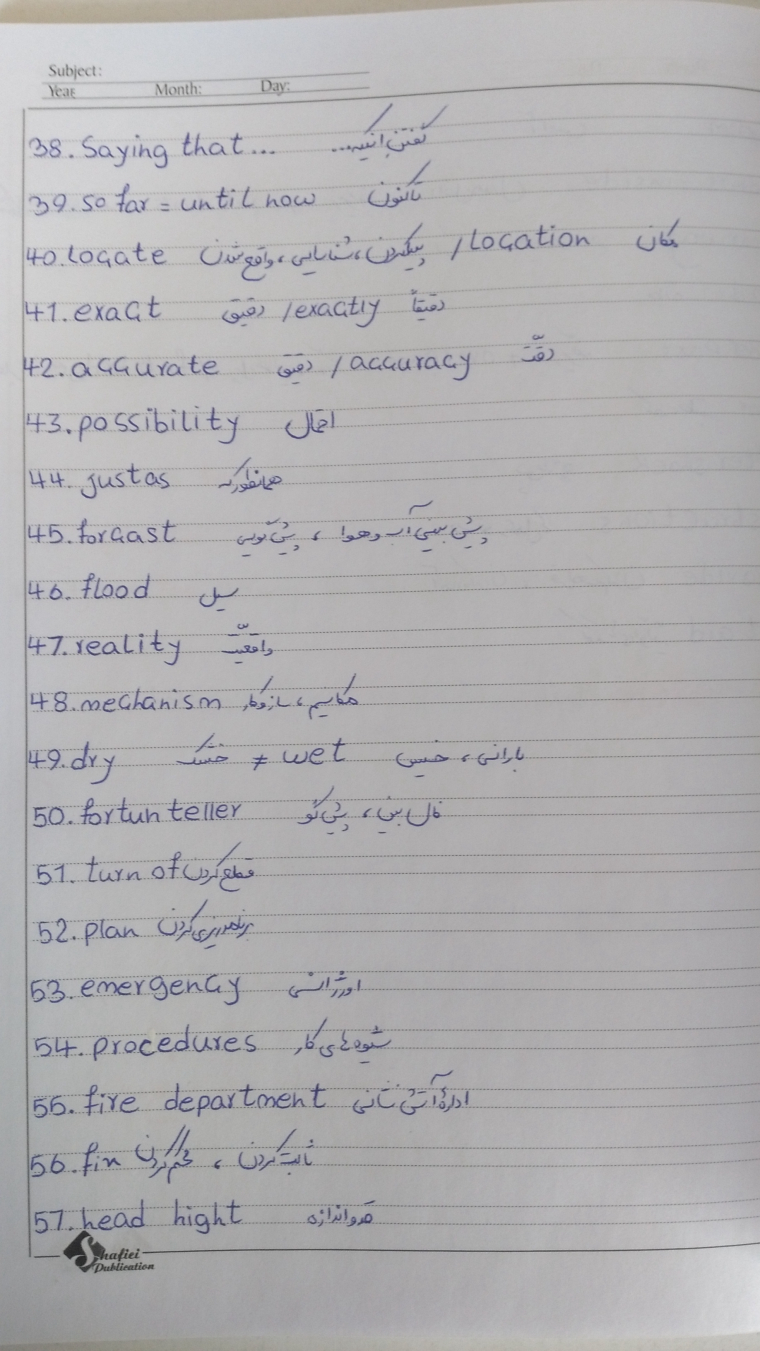 Subject:
Year Month: Day:
38. Saying that... گفتن اینکه...
39. so far = until now تاکنون
40. locate پیدا کردن، شناسایی، واقع شدن / location مکان
41. exact دقیق / exactly دقیقاً
42. accurate دقیق / accuracy دقّت
43. possibility احتمال
44. just as همانطور که
45. forcast پیش بینی آب و هوا، پیش گویی
46. flood سیل
47. reality واقعیّت
48. mechanism مکانیسم، سازوکار
49. dry خشک ≠ wet بارانی، خیس
50. fortun teller فال بین، پیش گو
51. turn of قطع کردن
52. plan برنامه ریزی کردن
53. emergency اورژانسی
54. procedures شیوه های کار
55. fire department ادارهٔ آتش نشانی
56. fin ثابت کردن، محکم کردن
57. head hight قد و اندازه
Shafiei
Publication